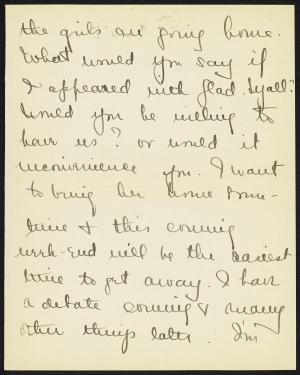 the girls are going home.
What would you say if
I appeared with Glad Lyall?
Would you be willing to
have us? or would it
inconvenience you. I want
to bring her home some-
time & this coming
week-end will be the easiest
time to get away. I have
a debate coming & many
other things later. I'm